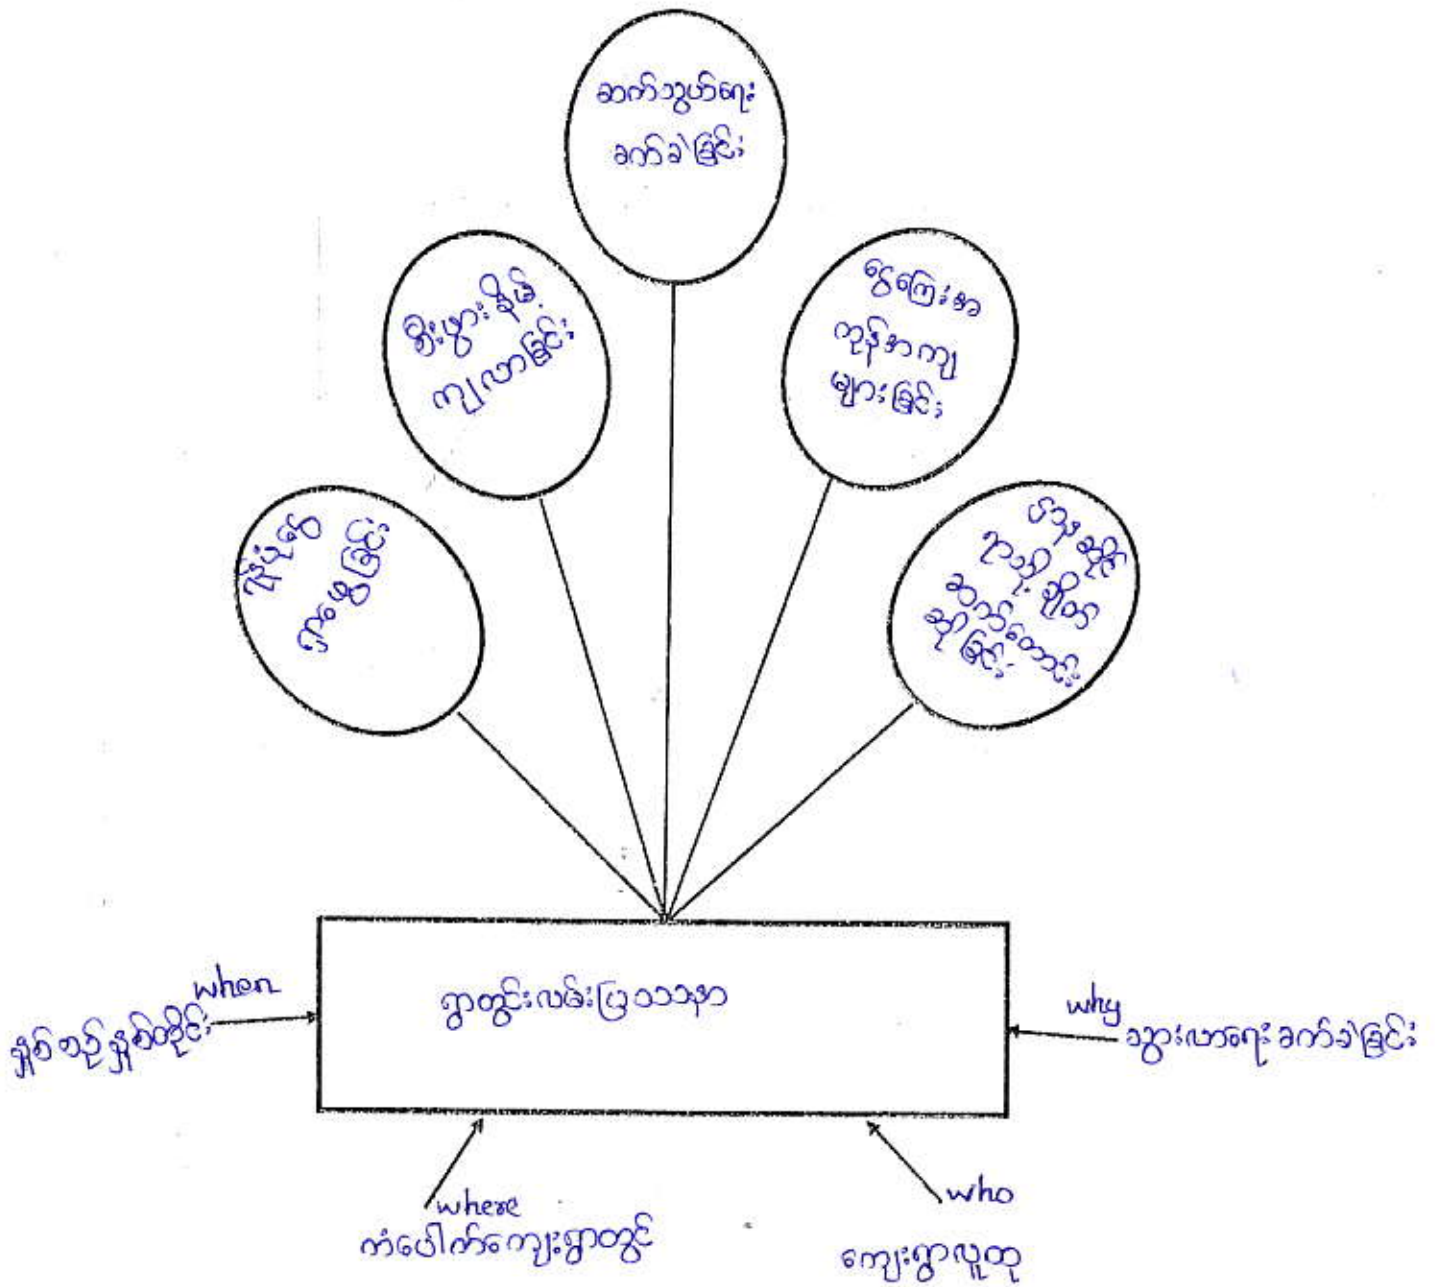 ဆက်သွယ်ရေး
ခက်ခဲခြင်း
စီးပွားနိမ့်
ကျလာခြင်း
ငွေကြေးအ
ကုန်အကျ
များခြင်း
ရန်ပုံငွေ
ရှာဖွေခြင်း
ဌာနဆိုင်
ရာသို့ချိတ်
ဆက်တောင်း
ဆိုခြင်း
ရွာတွင်းလမ်းပြဿနာ
when
နှစ်စဉ်နှစ်တိုင်း
why
သွားလာရေးခက်ခဲခြင်း
where
ကံပေါက်ကျေးရွာတွင်
who
ကျေးရွာလူထု